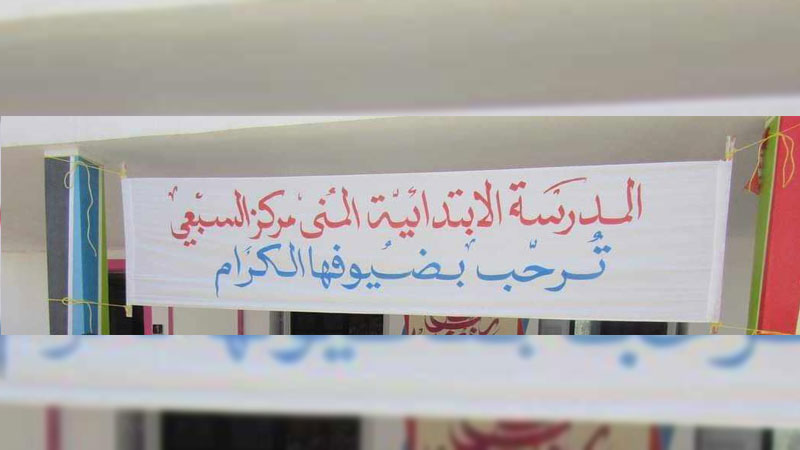 المدرسة الابتدائية المنى مركز السبعي
تُرحّب بضيوفها الكرام